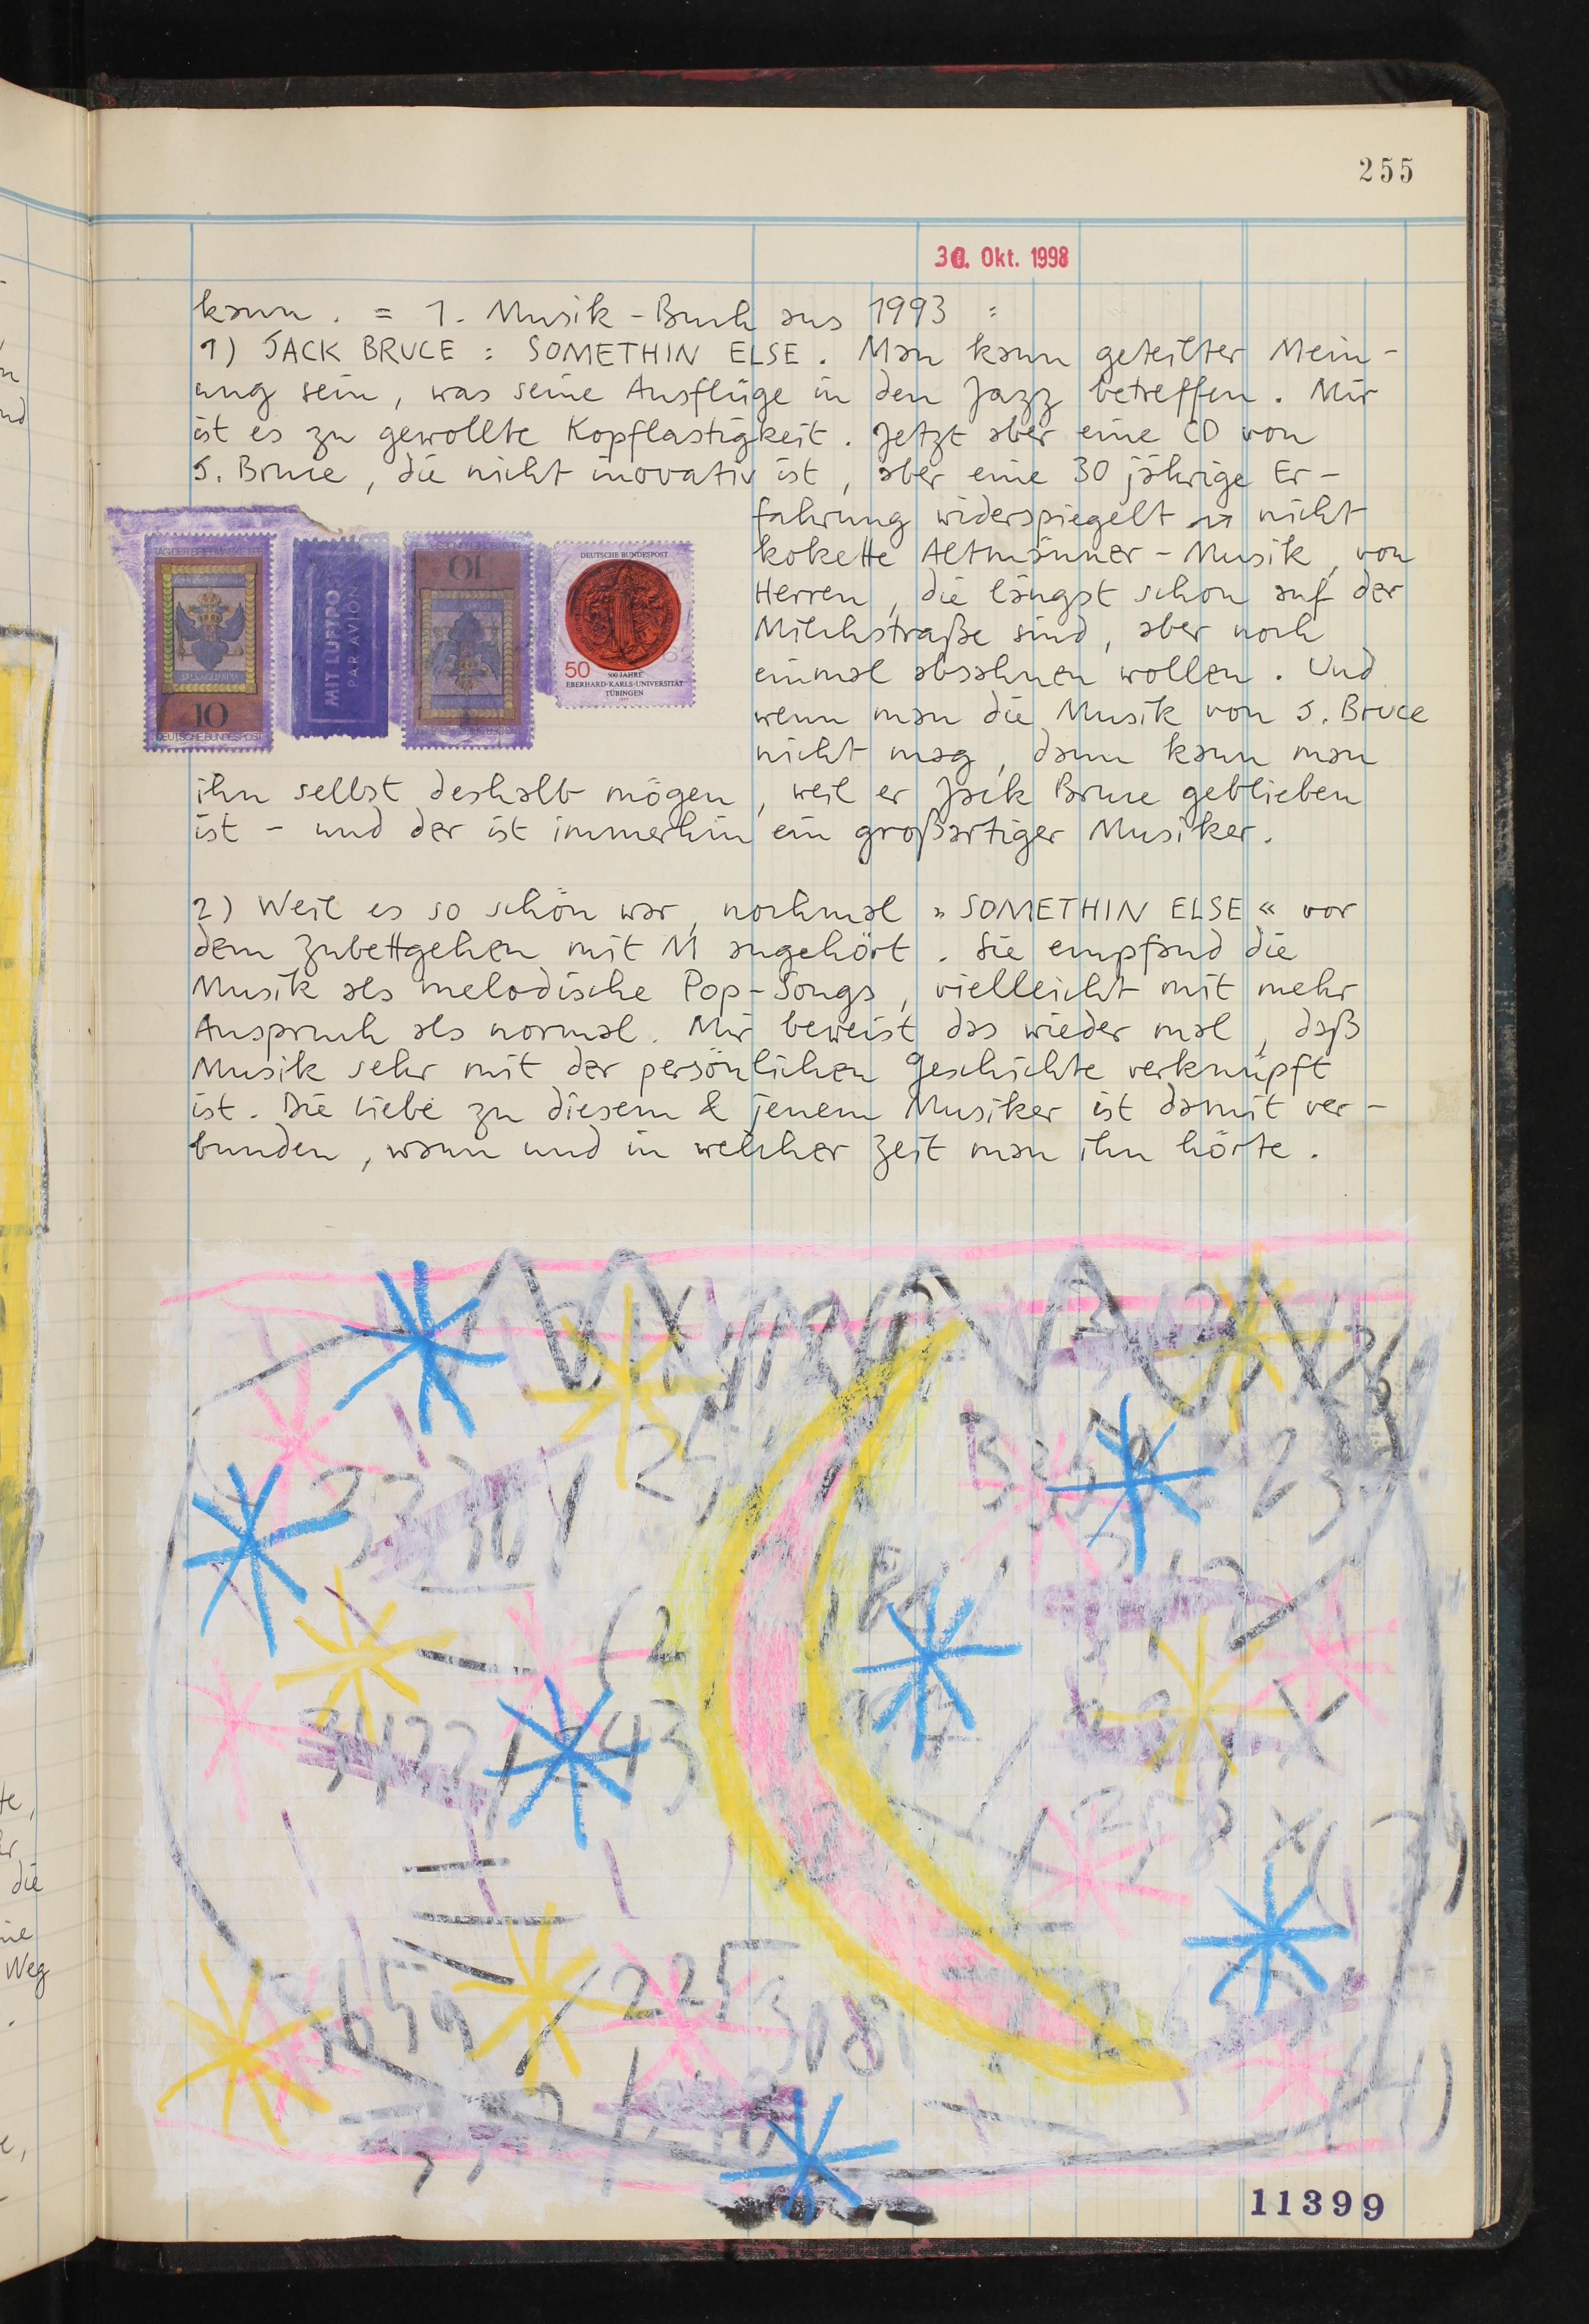 255
30. Okt. 1998
kann. = 1. Musik-Buch aus 1993 =
1) JACK BRUCE : SOMETHIN ELSE. Man kann geteilter Mein-
ung sein, was seine Ausflüge in den Jazz betreffen. Mir
ist es zu gewollte Kopflastigkeit. Jetzt aber eine CD von
J. Bruce, die nicht inovativ ist, aber eine 30 jährige Er-
fahrung widerspiegelt → nicht
kokette Altmänner-Musik, von
Herren, die längst schon auf der
Milchstraße sind, aber noch
einmal absahnen wollen. Und
wenn man die Musik von J. Bruce
nicht mag, dann kann man
ihn selbst deshalb mögen, weil er Jack Bruce geblieben
ist - und der ist immerhin ein großartiger Musiker.
TAG DER BRIEFMARKE
10
DEUTSCHE BUNDESPOST
MIT LUFTPOST
PAR AVION
10
DEUTSCHE BUNDESPOST
50
500 JAHRE
EBERHARD-KARLS-UNIVERSITÄT
TÜBINGEN
2) Weil es so schön war, nochmal »SOMETHIN ELSE« vor
dem Zubettgehen mit M angehört. Sie empfand die
Musik als melodische Pop-Songs, vielleicht mit mehr
Anspruch als normal. Mir beweist das wieder mal, daß
Musik sehr mit der persönlichen Geschichte verknüpft
ist. Die Liebe zu diesem & jenem Musiker ist damit ver-
bunden, wann und in welcher Zeit man ihn hörte.
225
3081
11399